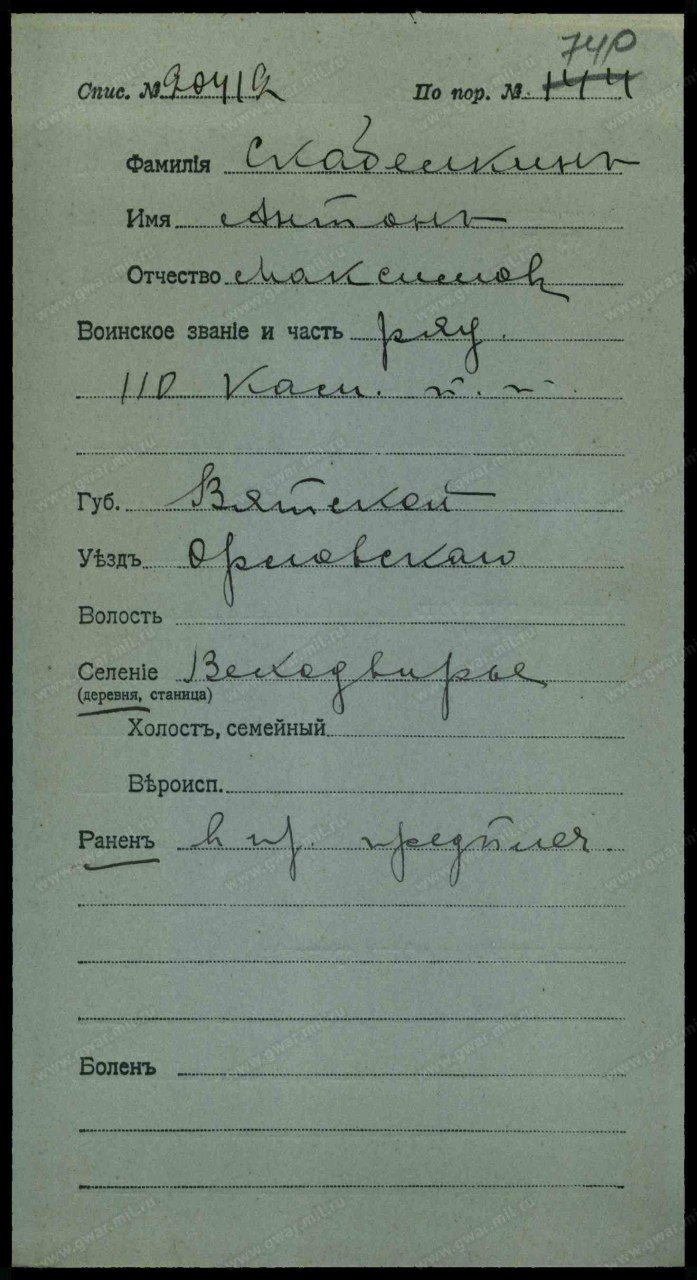 740
Спис. № 20412 По пор. № 144
Фамилія Скабелкинъ
Имя Антонъ
Отчество Максимов
Воинское званіе и часть ряд.
110 Кам. п. п.
Губ. Вятской
Уѣздъ Орловскаго
Волость
Селеніе
(деревня, станица)
Холостъ, семейный
Вѣроисп.
Раненъ в пр. предплеч.
Боленъ
www.gwar.mil.ru